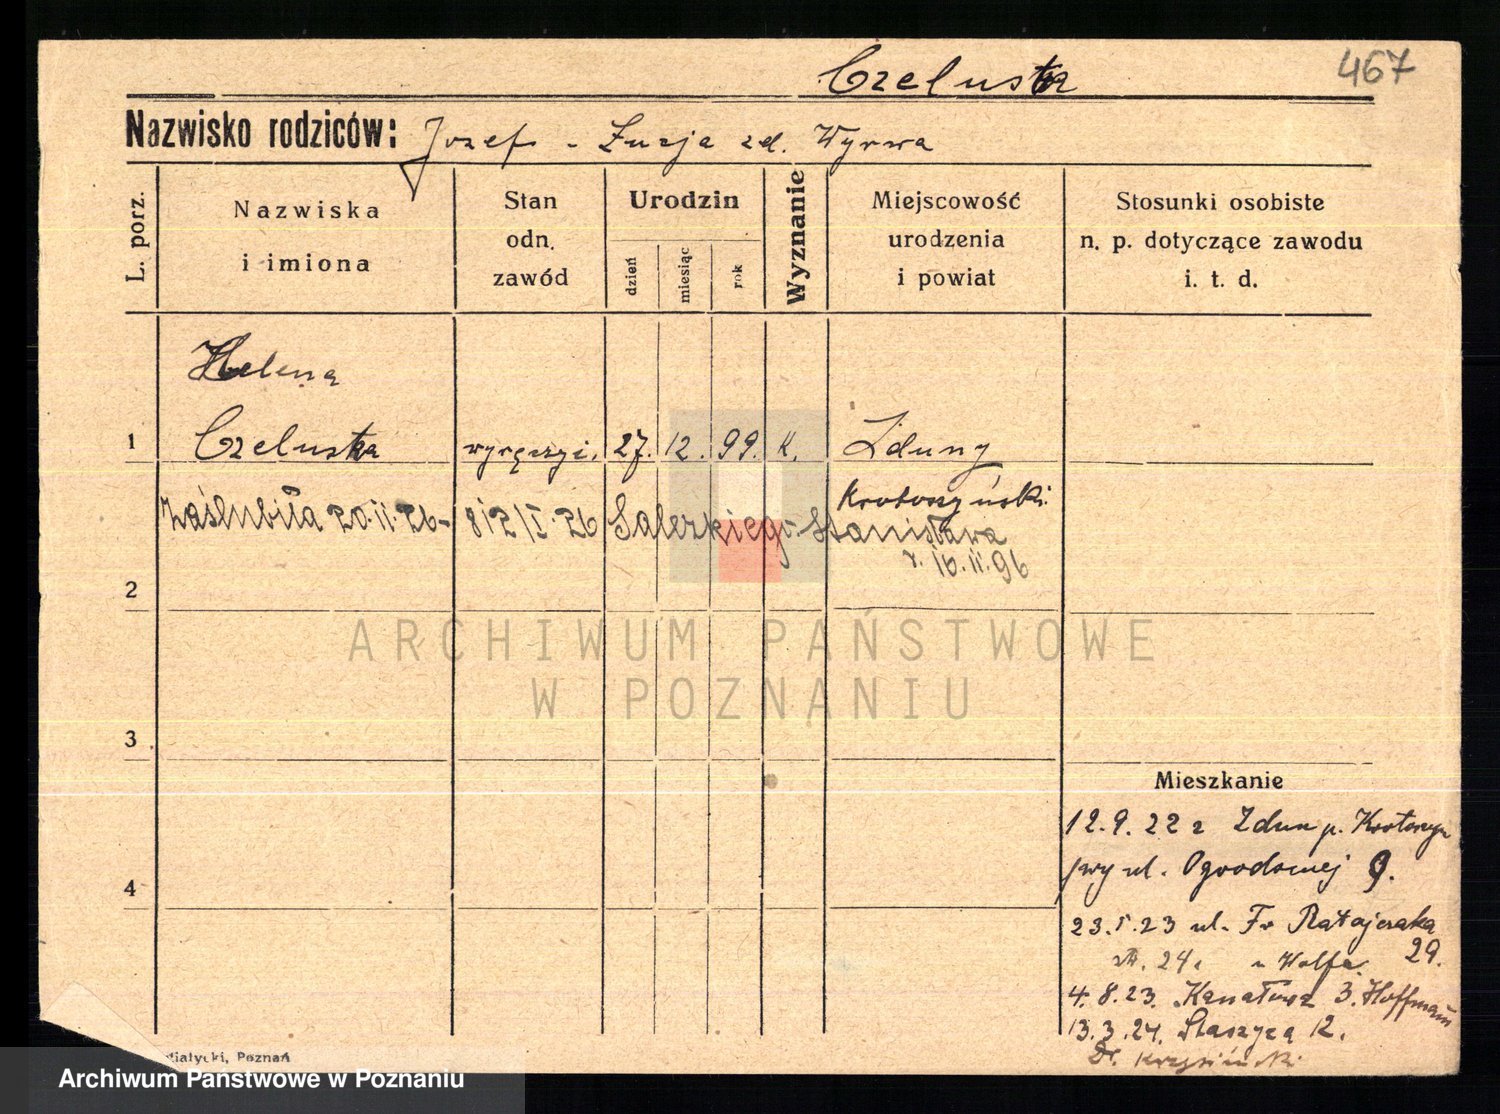 467
Czelusta
Nazwisko rodziców: Józef - Łucja zd. Wyrwa
L. porz.
Nazwiska
i imiona
Stan
odn.
zawód
Urodzin
dzień
miesiąc
rok
Wyznanie
Miejscowość
urodzenia
i powiat
Stosunki osobiste
n. p. dotyczące zawodu
i. t. d.
Helena
1 Czelusta 27. 12. 99. K. Zduny
Krotoszyński.
zaślubiła 20.II.26- 812/I.26 Salezkiego Stanisława
r. 16.II.96
2
ARCHIWUM PAŃSTWOWE
W POZNANIU
3
Mieszkanie
12.9.22 z Zdun p. Krotoszyn
4
przy ul. Ogrodowej 9.
23.I.23 ul. Fr Ratajczaka
29.
24. u Wolfa
4.8.23. Kanałowa 3. Hoffmann
13.3.24. Staszyca 12.
Dr. Krzysiński
Poznań
Archiwum Państwowe w Poznaniu